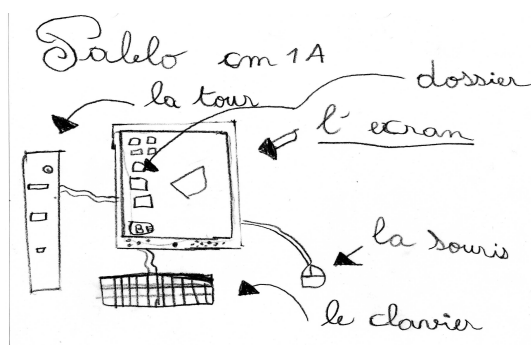 Pablo cm 1A
la tour
dossier
l'ecran
la souris
le clavier